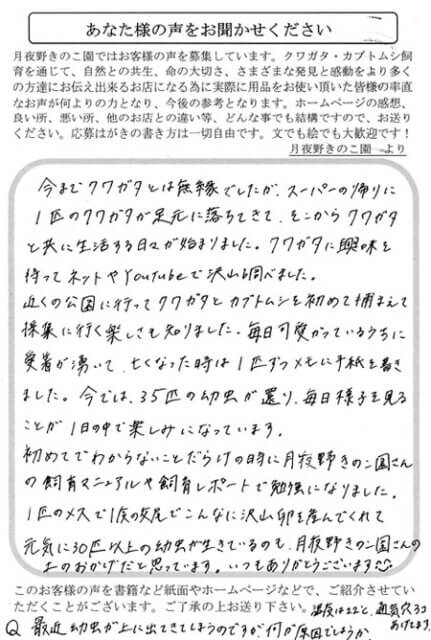 あなた様の声をお聞かせください
月夜野きのこ園ではお客様の声を募集しています。クワガタ・カブトムシ飼
育を通じて、自然との共生、命の大切さ、さまざまな発見と感動をより多く
の方達にお伝え出来るお店になる為に実際に用品をお使い頂いた皆様の率直
なお声が何よりの力となり、今後の参考となります。ホームページの感想、
良い所、悪い所、他のお店との違い等、どんな事でも結構ですので、お送り
ください。応募はがきの書き方は一切自由です。文でも絵でも大歓迎です！
月夜野きのこ園 より
今までクワガタとは無縁でしたが、スーパーの帰りに
1匹のクワガタが足元に落ちてきて、そこからクワガタ
と共に生活する日々が始まりました。クワガタに興味を
持ってネットやYoutubeで沢山調べました。
近くの公園に行ってクワガタとカブトムシを初めて捕まえて
採集に行く楽しさも知りました。毎日可愛がっているうちに
愛着が湧いて、亡くなった時は1匹ずつメモに手紙を書き
ました。今では、35匹の幼虫が還り、毎日様子を見る
ことが1日の中で楽しみになっています。
初めてでわからないことだらけの時に月夜野きのこ園さん
の飼育マニュアルや飼育レポートで勉強になりました。
1匹のメスで1度の交尾でこんなに沢山卵を産んでくれて
元気に30匹以上の幼虫が生きているのも、月夜野きのこ園さんの
土のおかげだと思っています。いつもありがとうございます
このお客様の声を書籍など紙面やホームページなどで、ご紹介させてい
ただくことがございます。ご了承の上お送り下さい。温度は22と、通気穴3コ
あけてますが、
Q 最近幼虫が上に出てきてしまうのですが何が原因でしょうか